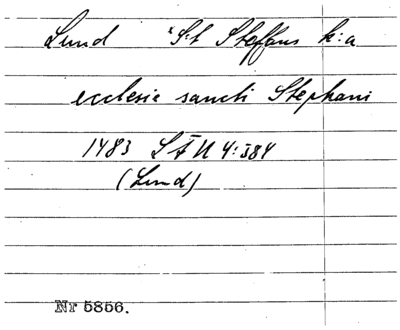 Lund *S:t Steffans k:a
ecclesie sancti Stephani
1483 LÄU 4:384
(Lund)
Nr 5856.